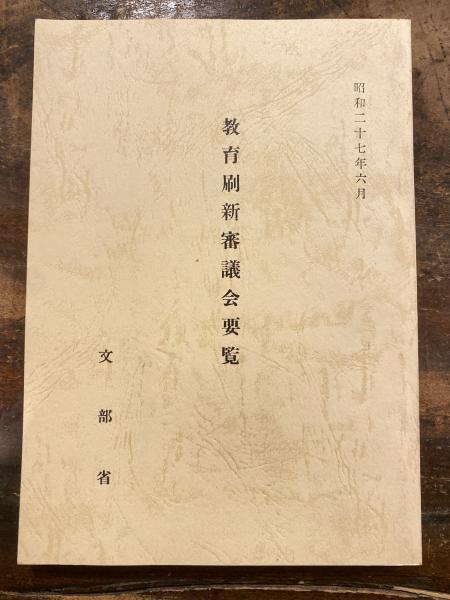 昭和二十七年六月
教育刷新審議会要覧
文部省